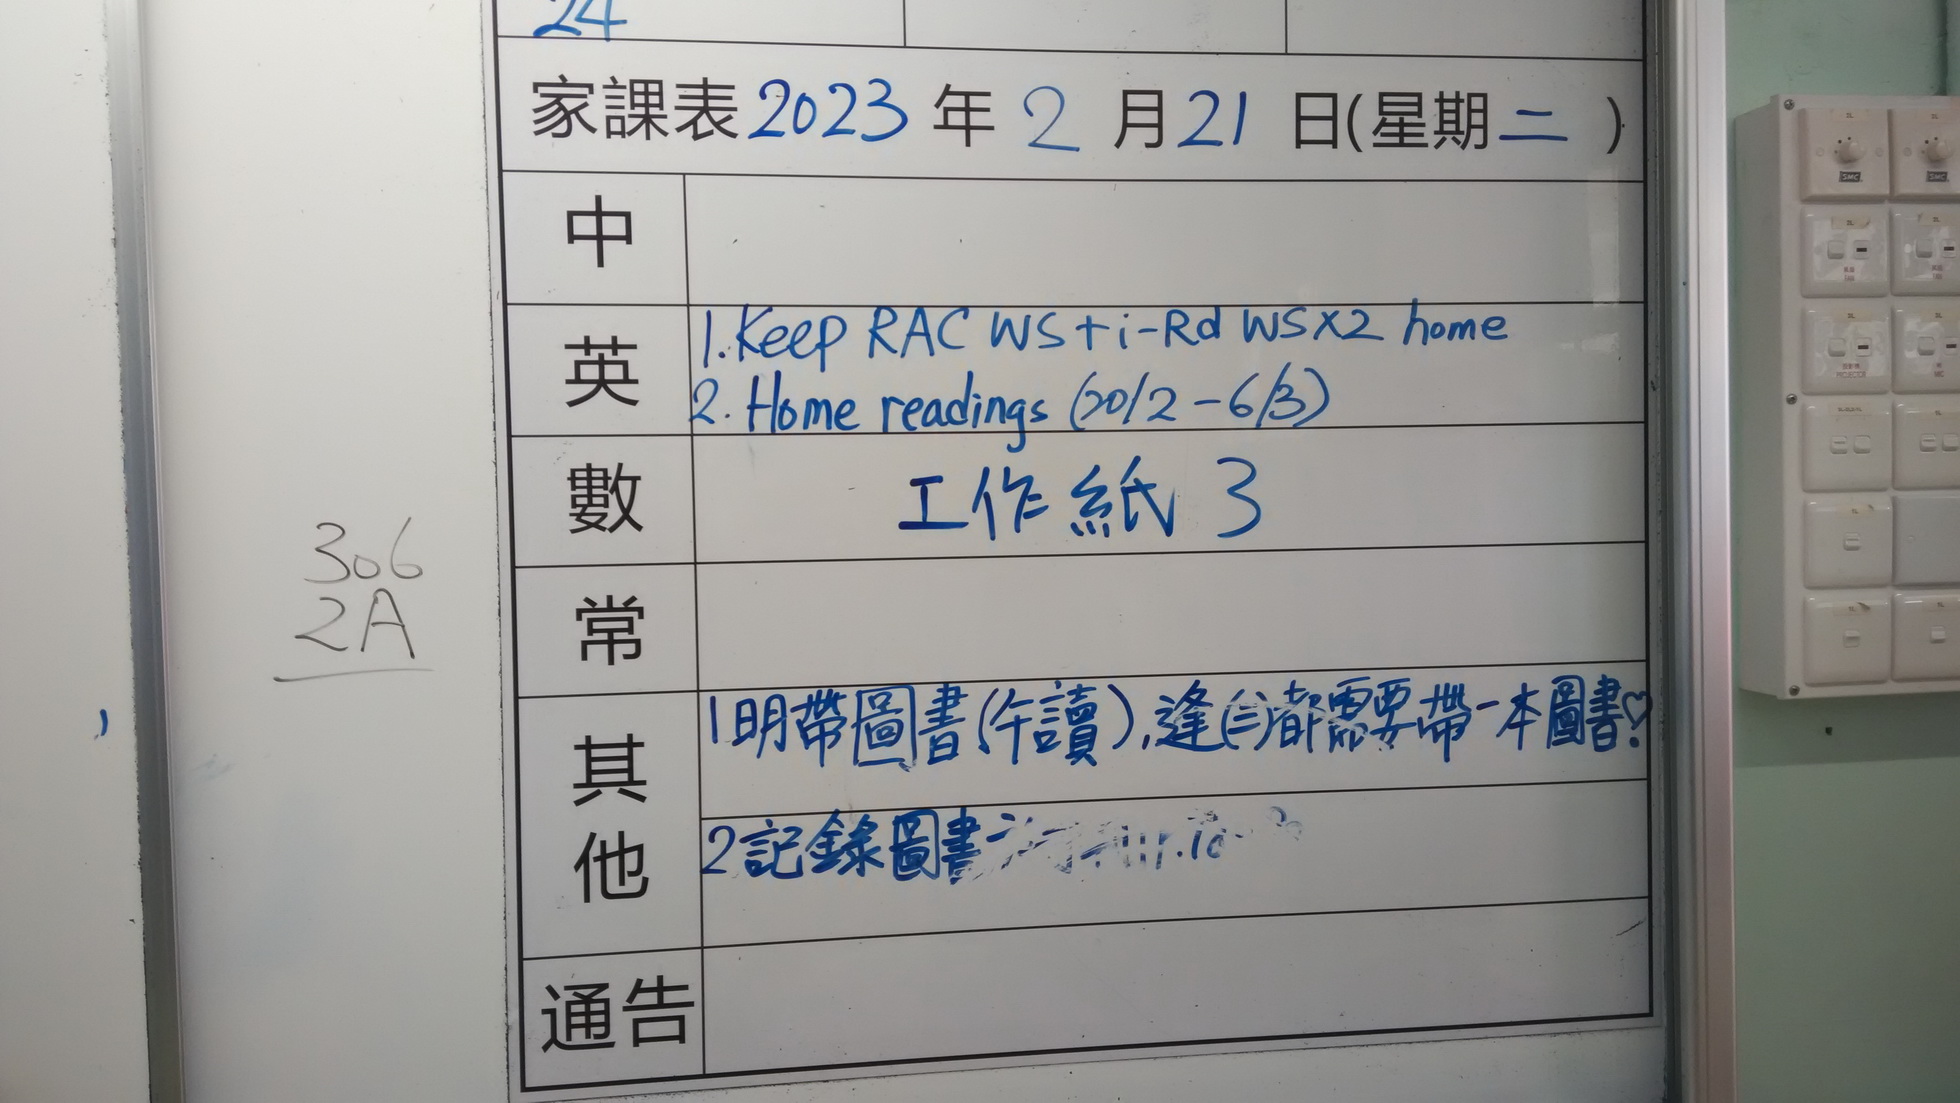 24
家課表 2023 年 2 月 21 日(星期二)
中
英
1. Keep RAC WS + i-Rd WSX2 home
2. Home readings (20/2 - 6/3)
數
工作紙 3
常
其他
1 明帶圖書(午讀),逢(三)都需要帶一本圖書♡!
2 記錄圖書
通告
306
2A